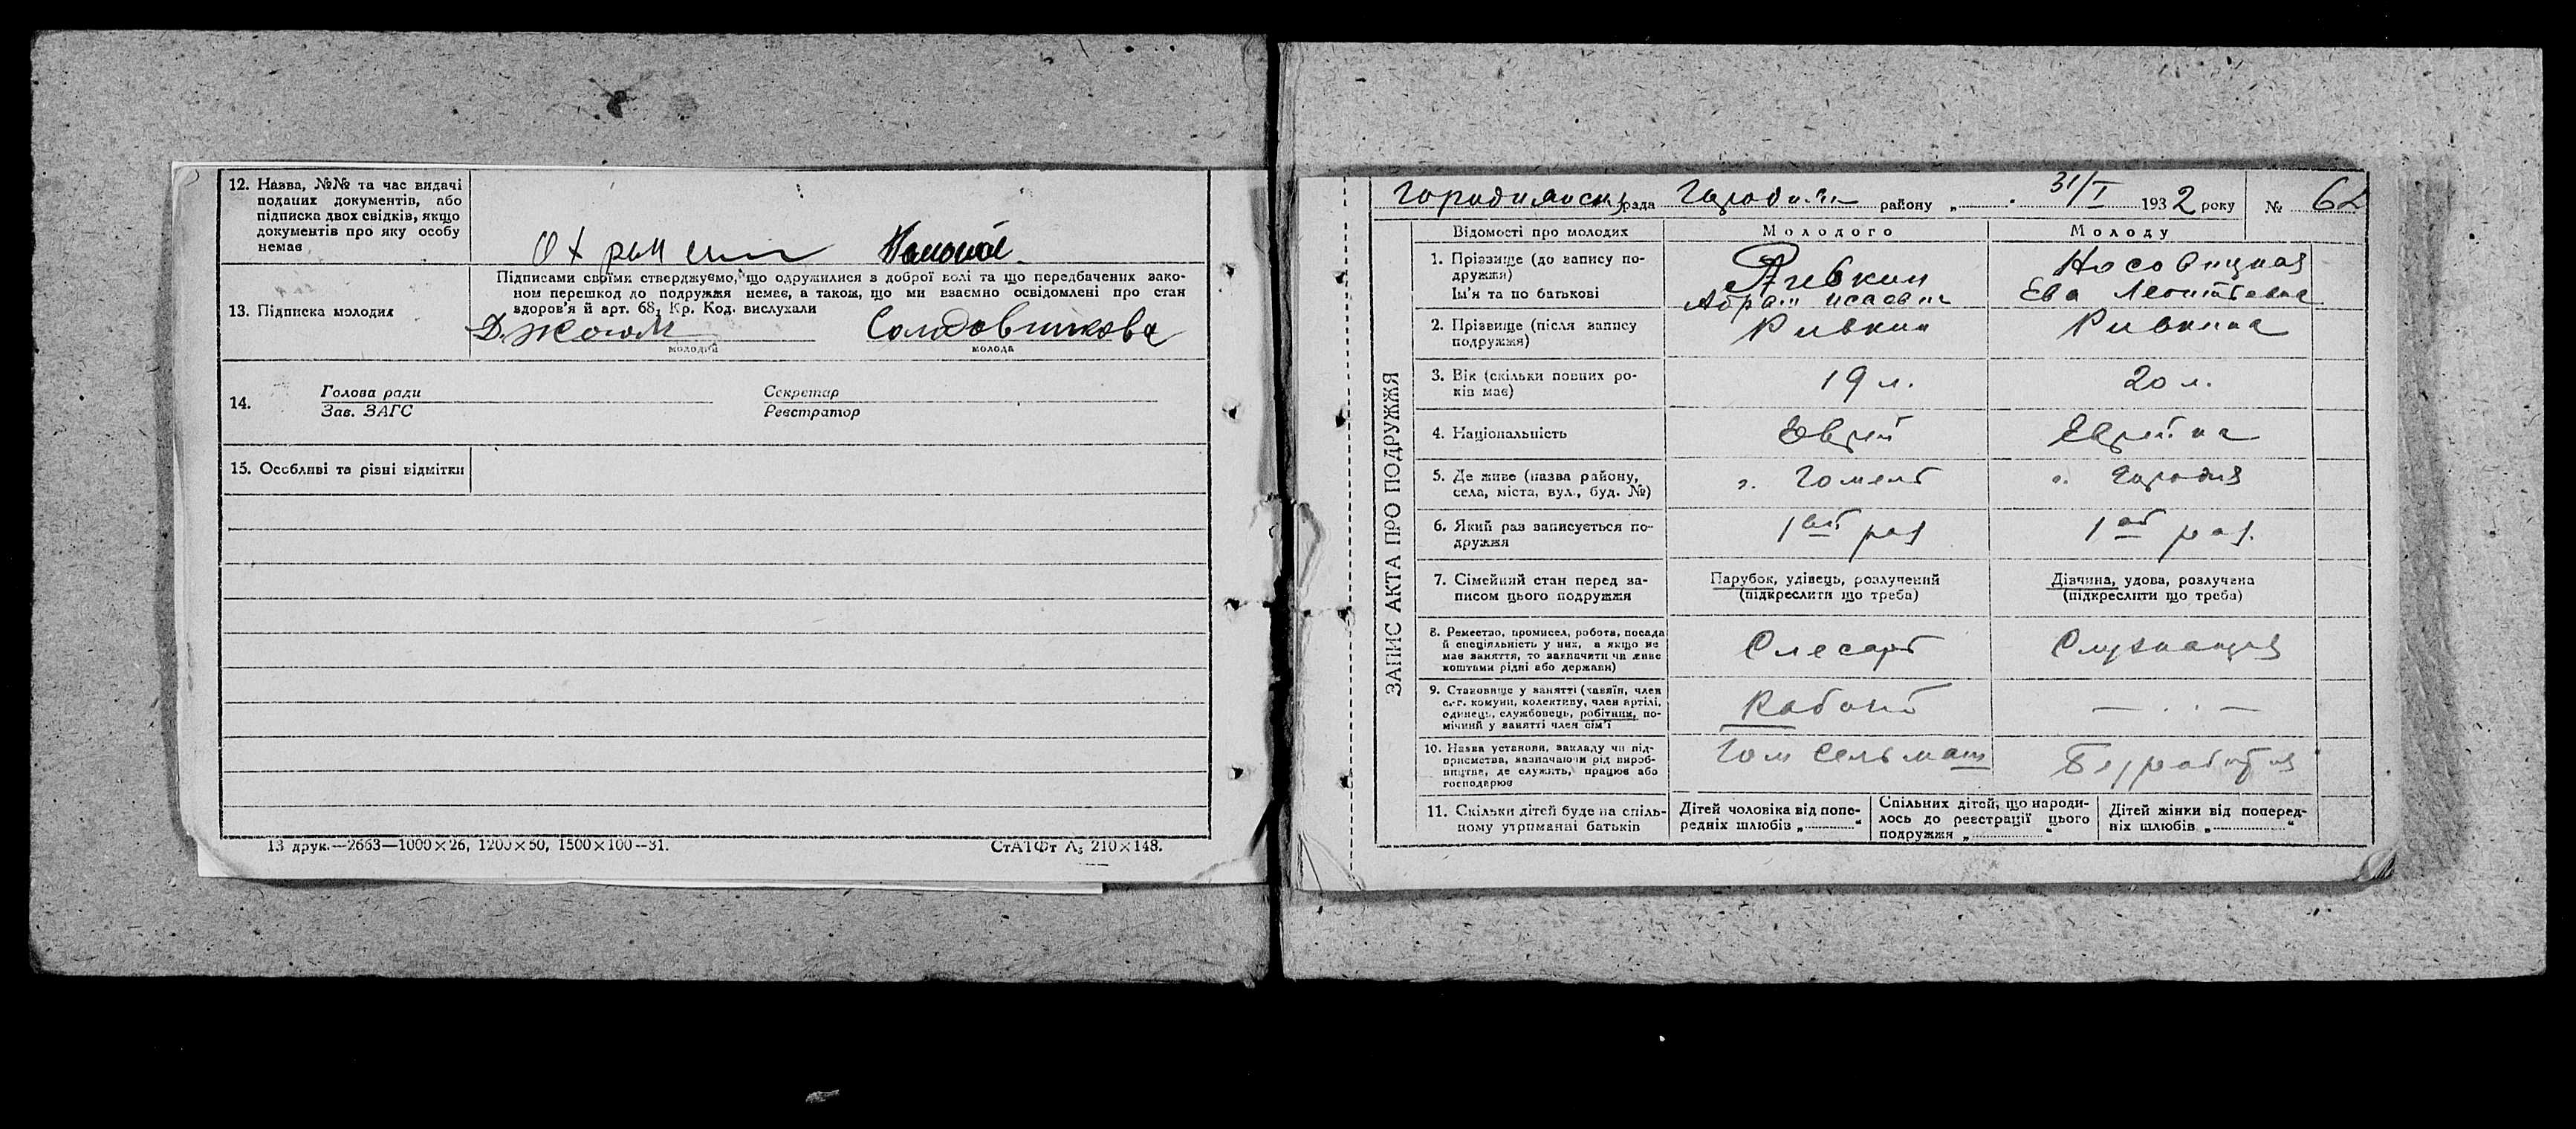 12. Назва, №№ та час видачі
поданих документів, або
підписка двох свідків, якщо
документів про яку особу
немає
13. Підписка молодих
Підписами своїми стверджуємо, що одружилися з доброї волі та що передбачених зако-
ном перешкод до подружжя немає, а також, що ми взаємно освідомлені про стан
здоров'я й арт. 68, Кр. Код. вислухали
Солодовникова
молодий
молода
14.
Голова ради
Зав. ЗАГС
Секретар
Реєстратор
15. Особливі та різні відмітки
13 друк.—2663—1000×26, 1200×50, 1500×100—31.
СтАТФт А₅ 210×148.
ЗАПИС АКТА ПРО ПОДРУЖЖЯ
Городнянск рада района районy „ 31/I 1932 року № 62
Відомості про молодих
Молодого
Молоду
1. Прізвище (до запису по-
дружжя)
Ім'я та по батькові
Ривкин
Абрам Исаевич
Носовицкая
Ева Леонтьевна
2. Прізвище (після запису
подружжя)
Ривкин
Ривкина
3. Вік (скільки повних ро-
ків має)
19 л.
20 л.
4. Національність
Еврей
Еврейка
5. Де живе (назва району,
села, міста, вул., буд. №)
г. Гомель
г. Городня
6. Який раз записується по-
дружжя
1ый раз
1ый раз.
7. Сімейний стан перед за-
писом цього подружжя
Парубок, удівець, розлучений
(підкреслити що треба)
Дівчина, удова, розлучена
(підкреслити що треба)
8. Ремество, промисел, робота, посада
й спеціяльність у них, а якщо не
має заняття, то зазначити чи живе
коштами рідні або держави)
Слесарь
Служащая
9. Становище у занятті (хазяїн, член
с.-г. комуни, колективу, член артілі,
одинець, службовець, робітник, по-
мічний у занятті член сім'ї
Рабочий
10. Назва установи, закладу чи під-
приємства, зазначаючи рід вироб-
ництва, де служить, працює або
господарює
Гомсельмаш
Безработная
11. Скільки дітей буде на спіль-
ному утриманні батьків
Дітей чоловіка від попе-
редніх шлюбів „............“
Спільних дітей, що народи-
лось до реєстрації цього
подружжя „............“
Дітей жінки від поперед-
ніх шлюбів „............“